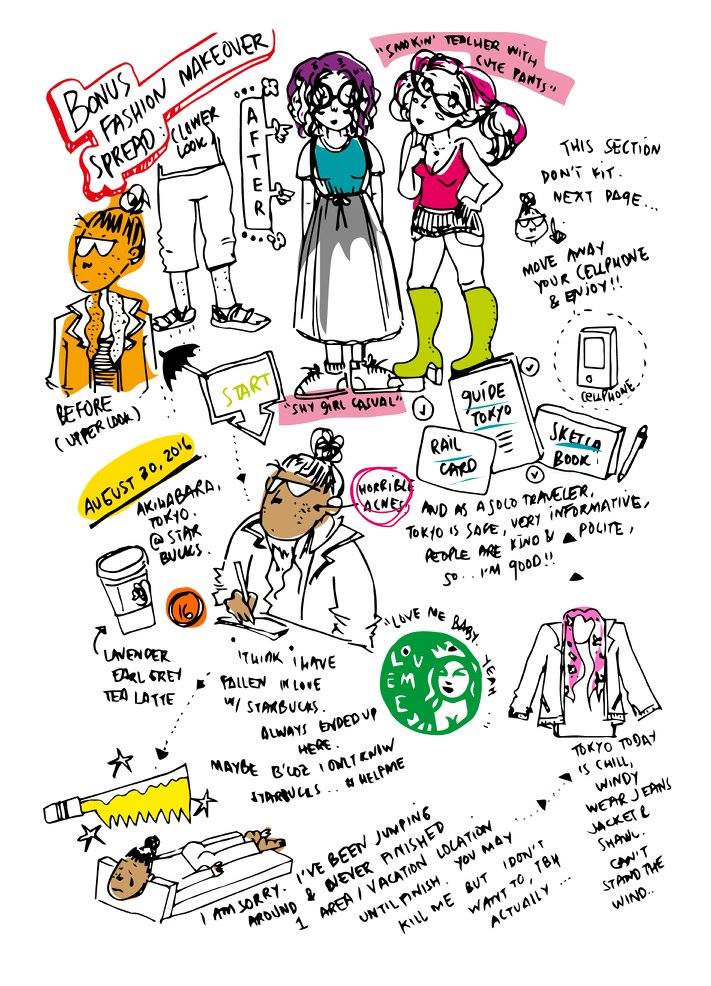 BONUS
FASHION MAKEOVER
SPREAD:
(LOWER
LOOK)
AFTER
"SMOKIN' TEACHER WITH
CUTE PANTS"
THIS SECTION
DON'T KIT.
NEXT PAGE...
MOVE AWAY
YOUR CELLPHONE
& ENJOY!!
CELLPHONE
BEFORE
(UPPER LOOK)
START
"SHY GIRL CASUAL"
GUIDE
TOKYO
RAIL
CARD
SKETCH
BOOK
AUGUST 30, 2016
AKIHABARA,
TOKYO.
@ STAR
BUCKS.
HORRIBLE
ACNES
AND AS A SOLO TRAVELER,
TOKYO IS SAFE, VERY INFORMATIVE,
PEOPLE ARE KIND & POLITE,
SO... I'M GOOD!!
16
LAVENDER
EARL GREY
TEA LATTE
I THINK I HAVE
FALLEN IN LOVE
W/ STARBUCKS.
ALWAYS ENDED UP
HERE.
MAYBE B'COZ I ONLY KNOW
STARBUCKS... #HELPME
"LOVE ME BABY, YEAH"
LOVE
ME
TOKYO TODAY
IS CHILL,
WINDY
WEAR JEANS
JACKET &
SHAWL.
CAN'T
STAND THE
WIND..
I AM SORRY. I'VE BEEN JUMPING
AROUND & NEVER FINISHED
1 AREA/VACATION LOCATION
UNTIL FINISH. YOU MAY
KILL ME BUT I DON'T
WANT TO, TBH
ACTUALLY ...